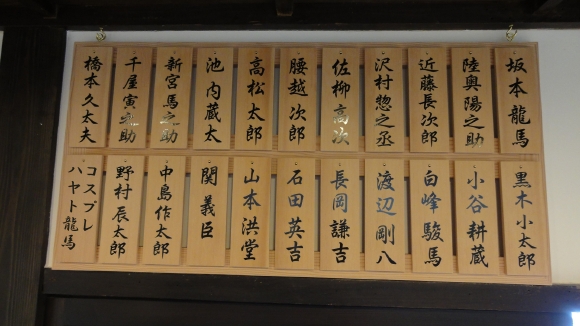 坂本龍馬
陸奥陽之助
近藤長次郎
沢村惣之丞
佐柳高次
腰越次郎
高松太郎
池内蔵太
新宮馬之助
千屋寅之助
橋本久太夫
黒木小太郎
小谷耕蔵
白峰駿馬
渡辺剛八
長岡謙吉
石田英吉
山本洪堂
関義臣
中島作太郎
野村辰太郎
コスプレ
ハヤト龍馬